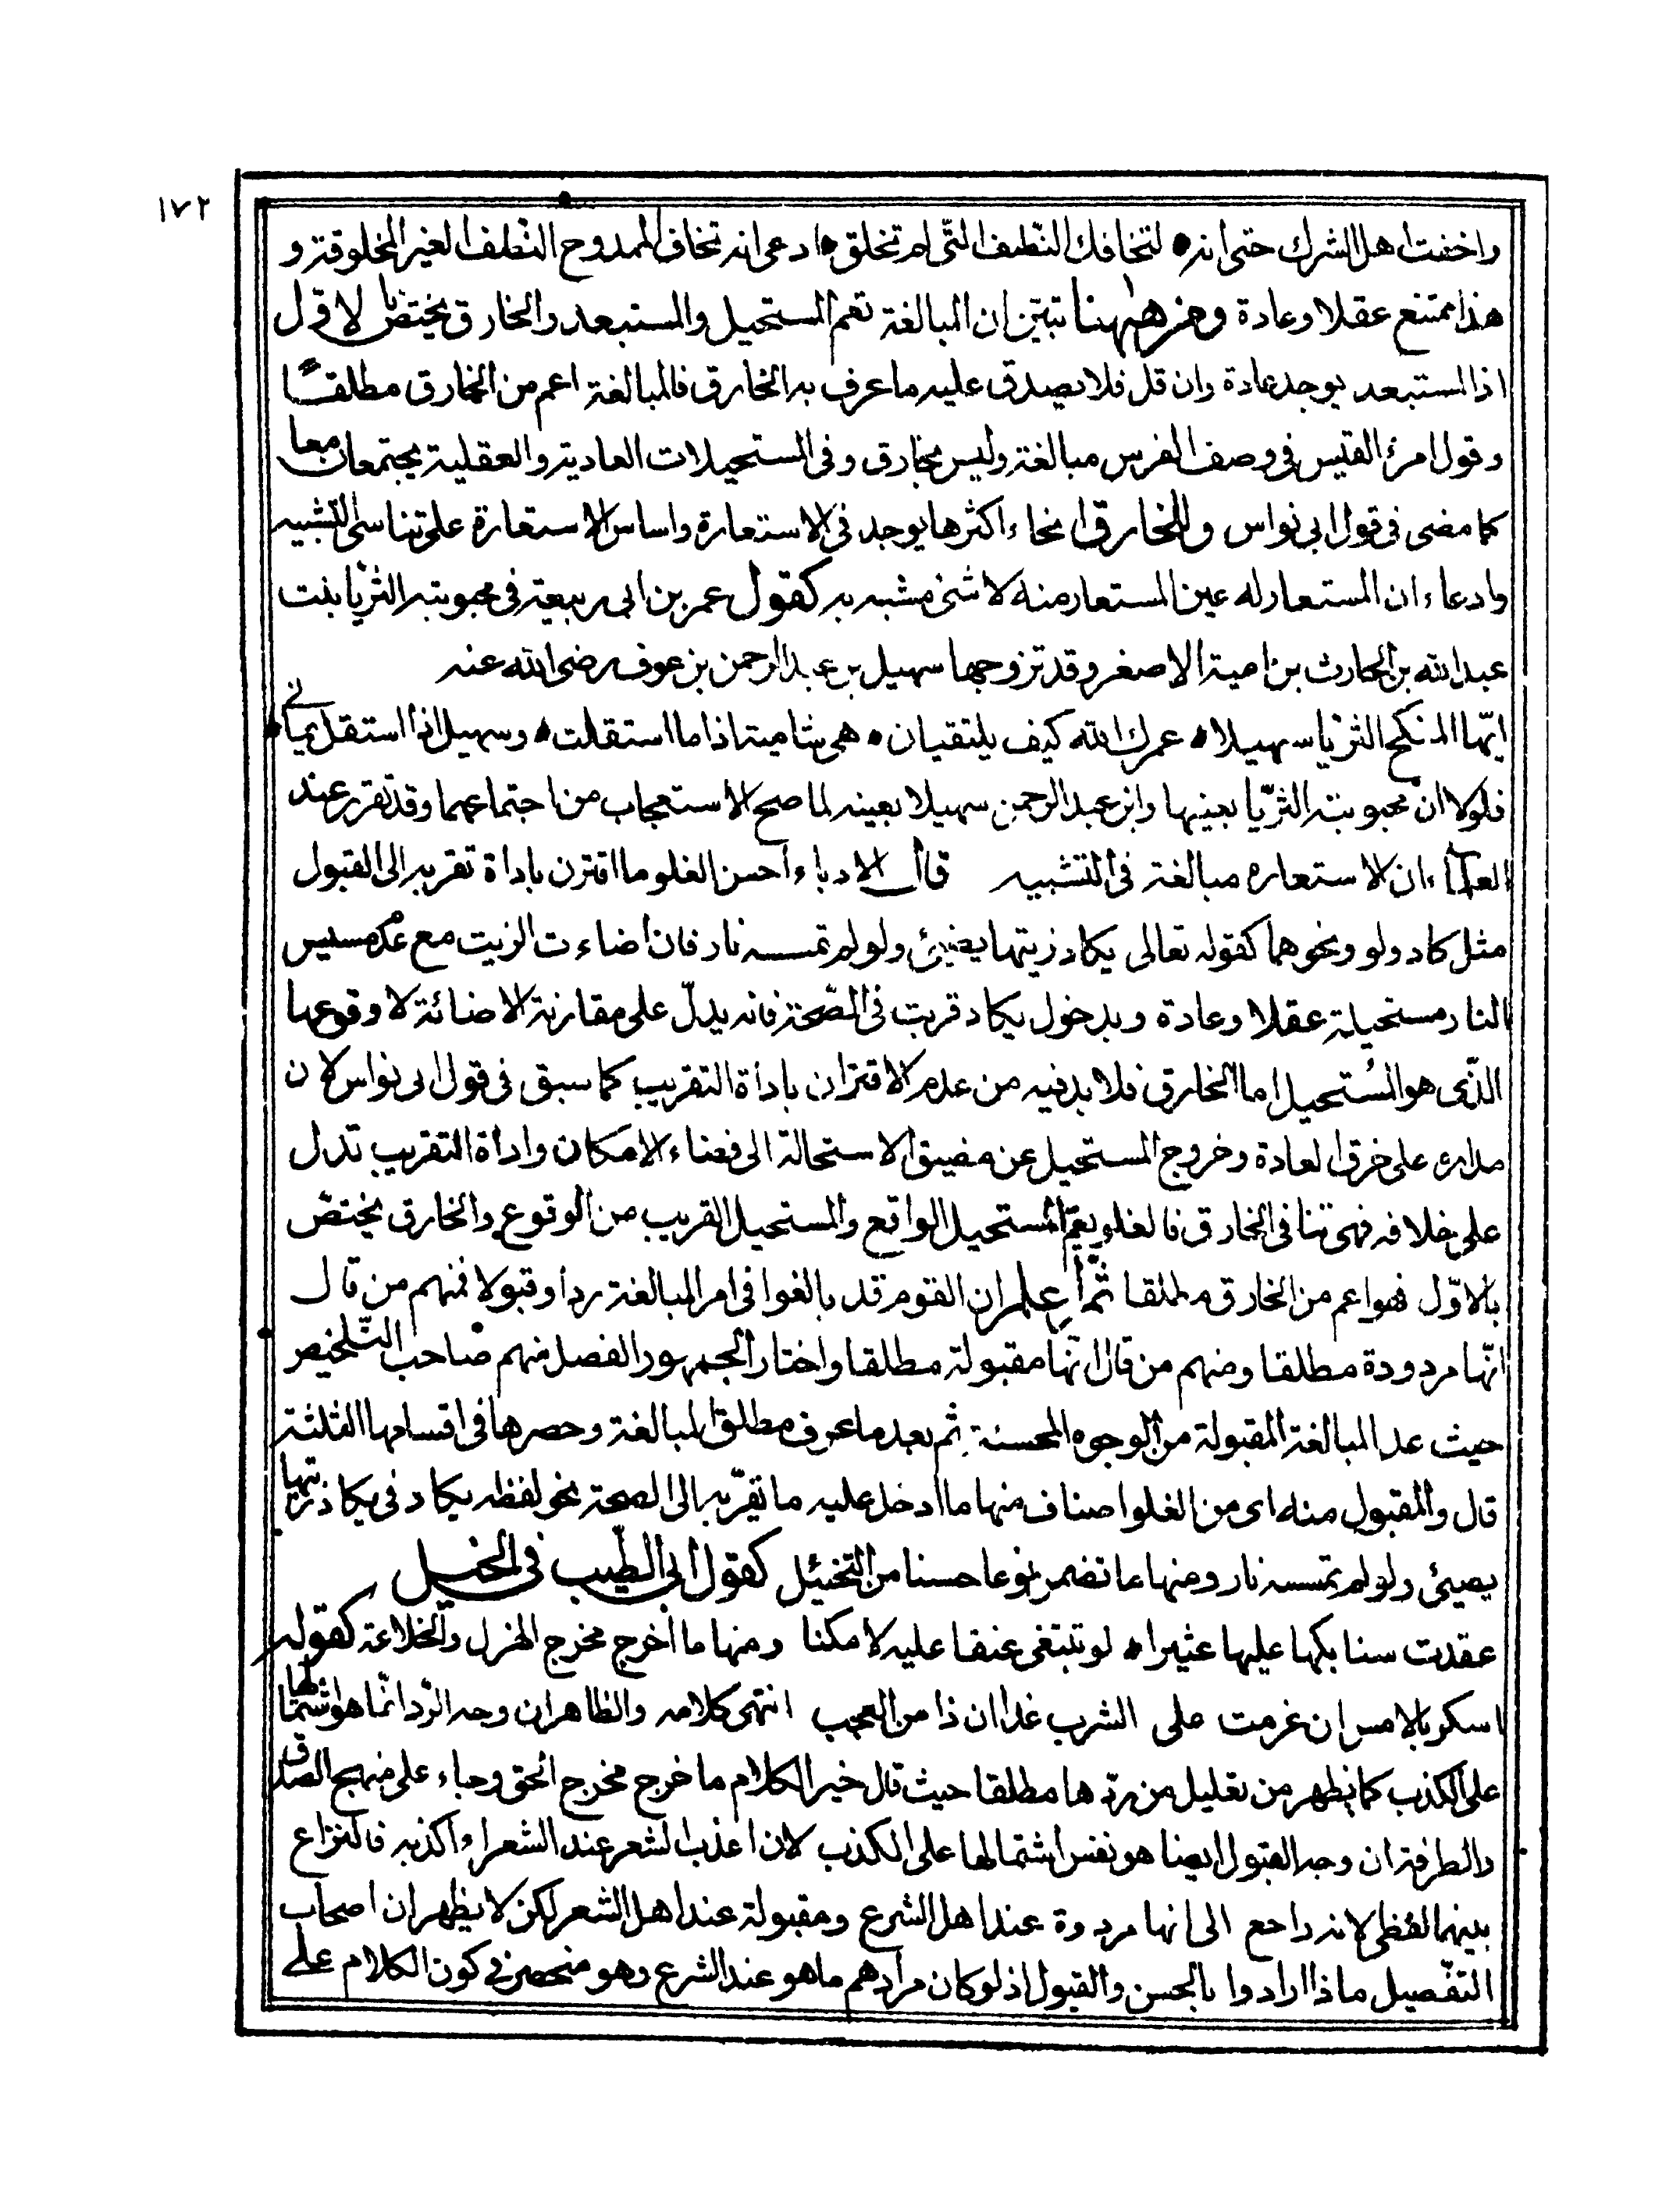 ١٧٢
واخفت اهل الشرك حتى انه • لتخافك النّطف التّى لم تخلق • ادعى انه تخاف الممدوح النّطف الغير المخلوقة و
هذا ممتنع عقلا وعادة ومن ههنا تبيّن ان المبالغة تعم المستحيل والمستبعد والخارق يختصّ بالاوّل
اذ المستبعد يوجد عادة وان قل فلا يصدق عليه ما عرف به الخارق فالمبالغة اعم من الخارق مطلقًا
وقول امرئ القيس فى وصف الفرس مبالغة وليس بخارق وفى المستحيلات العادية والعقلية يجتمعان معا
كما مضى فى قول ابى نواس وللخارق انحاء اكثرها يوجد فى الاستعارة واساس الاستعارة على تناسى التّشبيه
وادعاء ان المستعار له عين المستعار منه لا شئ مشبه به كقول عمر بن ابى ربيعة فى محبوبته الثريّا بنت
عبد الله بن الحارث بن امية الاصغر وقد تزوجها سهيل بن عبد الرحمن بن عوف رضى الله عنه
ايّها المنكح الثريا سهيلا • عمرك الله كيف يلتقيان • هى شامية اذا ما استقلت • وسهيل اذا استقل يمانى
فلولا ان محبوبته الثريّا بعينها وابن عبد الرحمن سهيلا بعينه لما صح الاستعجاب من اجتماعهما وقد تقرر عند
العلماء ان الاستعاره مبالغة فى التشبيه قال الادباء احسن الغلو ما اقترن باداة تقربه الى القبول
مثل كاد ولو ونحوهما كقوله تعالى يكاد زيتها يضيئ ولو لم تمسسه نار فان اضاءت الزيت مع عدم مسيس
النار مستحيلة عقلا وعادة وبدخول يكاد قربت فى الصّحة فانه يدلّ على مقارنة الاضائة لا وقوعها
الذّى هو المستحيل اما الخارق فلا بد فيه من عدم الاقتران باداة التقريب كما سبق فى قول ابى نواس لان
مداره على خرق العادة وخروج المستحيل عن مضيق الاستحالة الى فضاء الامكان واداة التقريب تدل
على خلافه فهى تنافى الخارق فالغلو يعمّ المستحيل الواقع والمستحيل القريب من الوقوع والخارق يختصّ
بالاوّل فهو اعم من الخارق مطلقا ثمّ اعلم ان القوم قد بالغوا فى امر المبالغة ردا وقبولا فمنهم من قال
انّها مردودة مطلقا ومنهم من قال انّها مقبولة مطلقا واختار الجمهور الفصل منهم صاحب التّلخيص
حيث عد المبالغة المقبولة من الوجوه المحسنة ثم بعد ما عرف مطلق المبالغة وحصرها فى اقسامها الثلثة
قال والمقبول منه اى من الغلو اصناف منها ما ادخل عليه ما تقرّبه الى الصحة نحو لفظه يكاد فى يكاد زيتها
يضيئ ولو لم تمسسه نار ومنها ما تضمن نوعا حسنا من التخيئل كقول ابى الطّيب فى الخيل
عقدت سنابكها عليها عثيرا • لو تبتغى عنقا عليه لامكنا ومنها ما اخرج مخرج الهزل والخلاعة كقوله
اسكر بالامس ان عزمت على الشرب غدا ان ذا من العجب انتهى كلامه والظاهر ان وجه الرّد انّما هو اشتمالها
على الكذب كما يظهر من تعليل من ردّها مطلقا حيث قال خير الكلام ما خرج مخرج الحق وجاء على منهج الصدق
والطرفة ان وجه القبول ايضا هو نفس اشتمالها على الكذب لان اعذب الشعر عند الشعراء اكذبه فالنزاع
بينهما لفظى لانه راجع الى انها مردودة عند اهل الشرع ومقبولة عند اهل الشعر لكن لا يظهر ان اصحاب
التفّصيل ماذا ارادوا بالحسن والقبول اذ لو كان مرادهم ما هو عند الشرع وهو منحصر فى كون الكلام على